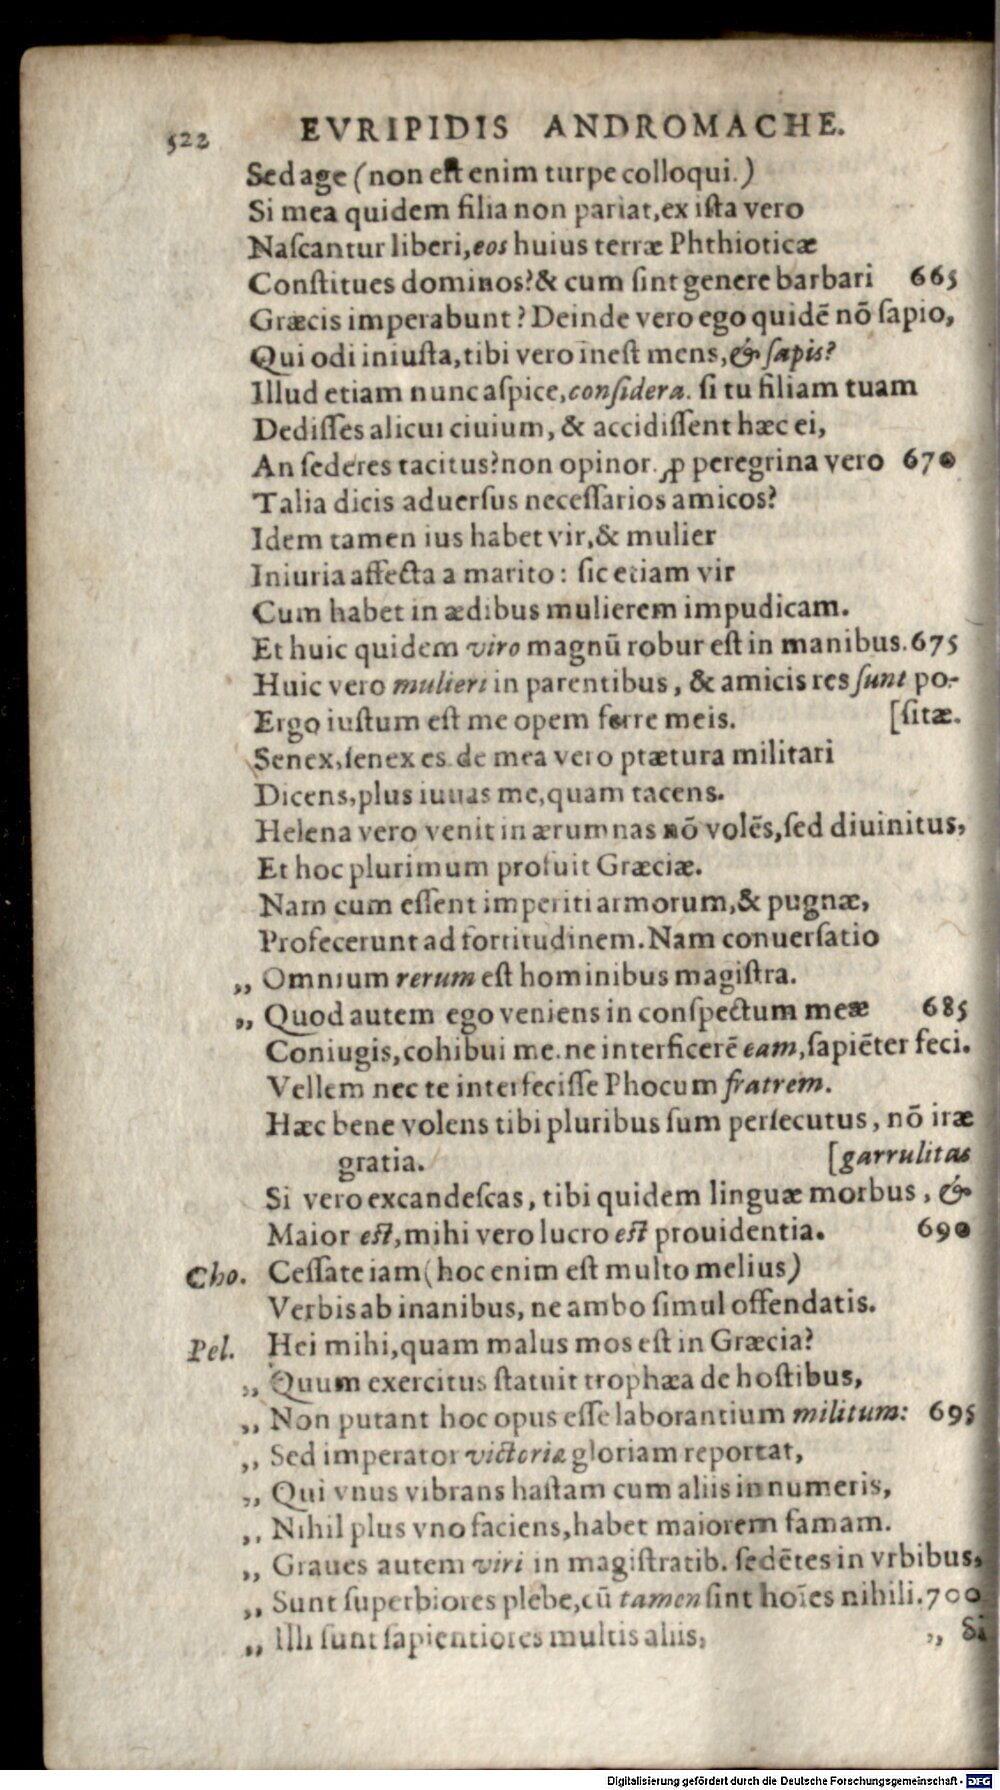 522 EVRIPIDIS ANDROMACHE.
Sed age (non est enim turpe colloqui.)
Si mea quidem filia non pariat, ex ista vero
Nascantur liberi, eos huius terræ Phthioticæ
Constitues dominos? & cum sint genere barbari 665
Græcis imperabunt? Deinde vero ego quidē nō sapio,
Qui odi iniusta, tibi vero inest mens, & sapis?
Illud etiam nunc aspice, considera. si tu filiam tuam
Dedisses alicui ciuium, & accidissent hæc ei,
An sederes tacitus? non opinor. ꝓ peregrina vero 670
Talia dicis aduersus necessarios amicos?
Idem tamen ius habet vir, & mulier
Iniuria affecta a marito: sic etiam vir
Cum habet in ædibus mulierem impudicam.
Et huic quidem viro magnū robur est in manibus. 675
Huic vero mulieri in parentibus, & amicis res sunt po-
Ergo iustum est me opem ferre meis. [sitæ.
Senex, senex es. de mea vero prætura militari
Dicens, plus iuuas me, quam tacens.
Helena vero venit in ærumnas nō volēs, sed diuinitus,
Et hoc plurimum profuit Græciæ.
Nam cum essent imperiti armorum, & pugnæ,
Profecerunt ad fortitudinem. Nam conuersatio
,, Omnium rerum est hominibus magistra.
,, Quod autem ego veniens in conspectum meæ 685
Coniugis, cohibui me. ne interficerē eam, sapiēter feci.
Vellem nec te interfecisse Phocum fratrem.
Hæc bene volens tibi pluribus sum persecutus, nō iræ
gratia. [garrulitas
Si vero excandescas, tibi quidem linguæ morbus, &
Maior est, mihi vero lucro est prouidentia. 690
Cho. Cessate iam (hoc enim est multo melius)
Verbis ab inanibus, ne ambo simul offendatis.
Pel. Hei mihi, quam malus mos est in Græcia?
,, Quum exercitus statuit trophæa de hostibus,
,, Non putant hoc opus esse laborantium militum: 695
,, Sed imperator victoriæ gloriam reportat,
,, Qui vnus vibrans hastam cum aliis innumeris,
,, Nihil plus vno faciens, habet maiorem famam.
,, Graues autem viri in magistratib. sedētes in vrbibus,
,, Sunt superbiores plebe, cū tamen sint hoīes nihili. 700
,, Illi sunt sapientiores multis aliis,
,, Si
Digitalisierung gefördert durch die Deutsche Forschungsgemeinschaft - DFG